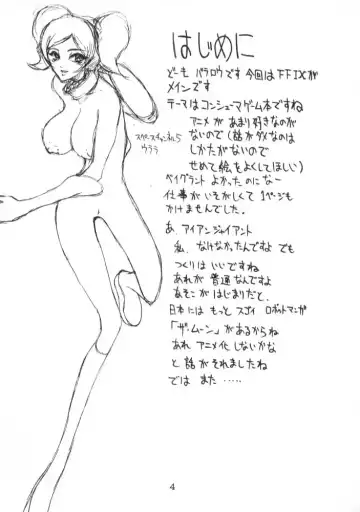 はじめに
どーも パラロウです 今回はFFIXが
メインです
テーマはコンシューマゲーム本ですね
アニメが あまり好きなのが
ないので(話がダメなのは
しかたがないので
せめて絵をよくしてほしい)
ベイグラント よかったのになー
仕事がいそがしくて 1ページも
かけませんでした。
あ、アイアンジャイアント
私、なけなかったんですよ でも
つくりはいいですね
あれが 普通なんですよ
あそこがはじまりだと。
日本には もっと スゴイ ロボットマンガ
「ザ・ムーン」があるからね
あれ アニメ化 しないかな
と 話がそれましたね
では また .....
スペースチャンネル5
ウララ
4